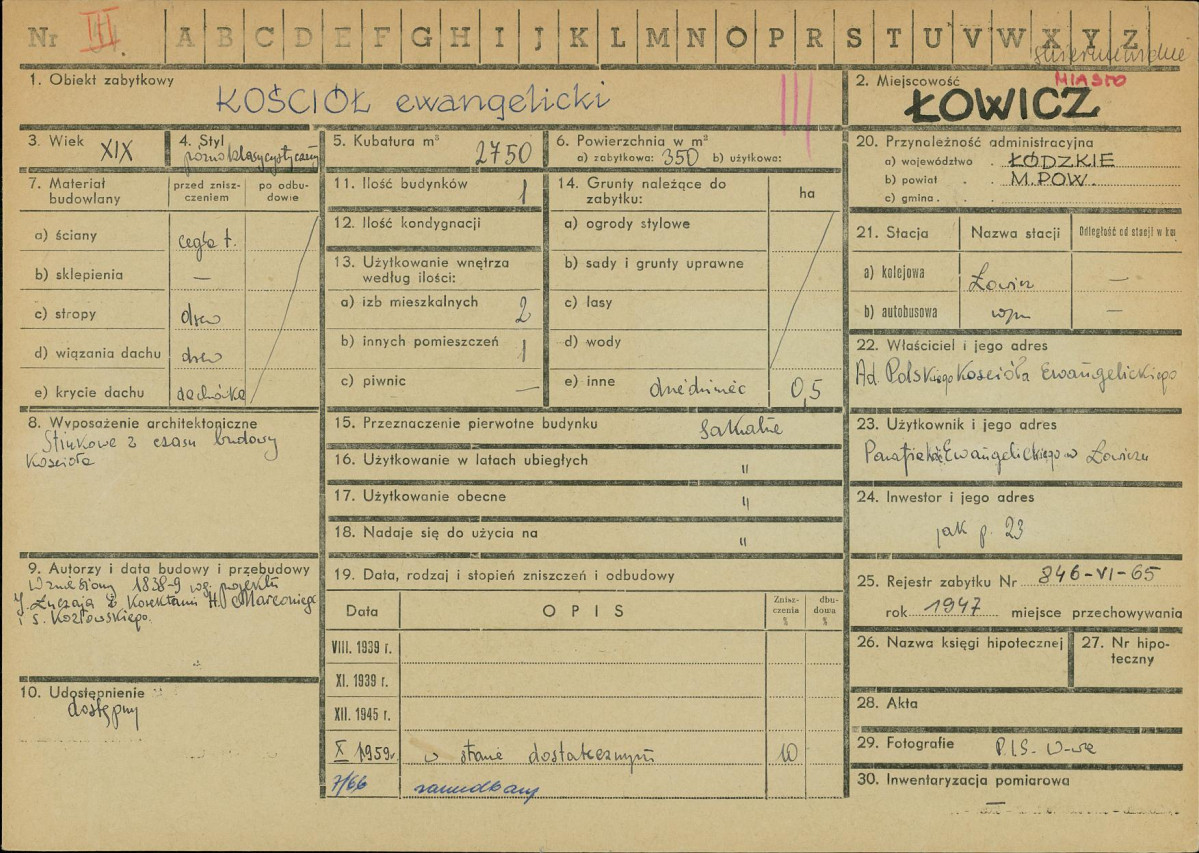 Nr III A B C D E F G H I J K L M N O P R S T U V W X Y Z
skierniewickie
1. Obiekt zabytkowy
KOŚCIÓŁ ewangelicki III
2. Miejscowość MIASTO
ŁOWICZ
3. Wiek XIX
4. Styl
póżnoklasycystyczny
5. Kubatura m³ 2750
6. Powierzchnia w m²
a) zabytkowa: 350 b) użytkowa:
20. Przynależność administracyjna
a) województwo . ŁÓDZKIE
b) powiat . . M.POW.
c) gmina . . .
7. Materiał budowlany
przed znisz-
czeniem
po odbu-
dowie
a) ściany cegła t.
b) sklepienia —
c) stropy drew
d) wiązania dachu drew
e) krycie dachu dachówka
11. Ilość budynków 1
12. Ilość kondygnacji
13. Użytkowanie wnętrza
według ilości:
a) izb mieszkalnych 2
b) innych pomieszczeń 1
c) piwnic —
14. Grunty należące do
zabytku:
ha
a) ogrody stylowe
b) sady i grunty uprawne
c) lasy
d) wody
e) inne dziedziniec 0,5
21. Stacja Nazwa stacji Odległość od stacji w km
a) kolejowa Łowicz —
b) autobusowa wpm —
22. Właściciel i jego adres
Ad. Polskiego Kościoła Ewangelickiego
8. Wyposażenie architektoniczne
z czasu budowy
Kościoła
15. Przeznaczenie pierwotne budynku sakralne
16. Użytkowanie w latach ubiegłych "
17. Użytkowanie obecne "
18. Nadaje się do użycia na "
23. Użytkownik i jego adres
Parafia Ewangelickiego w Łowiczu
24. Inwestor i jego adres
jak p. 23
9. Autorzy i data budowy i przebudowy
Wzniesiony 1838-9 wg. projektu
J. z Korektami H. Marconiego
i S. Kozłowskiego.
19. Data, rodzaj i stopień zniszczeń i odbudowy
Data OPIS
Znisz-
czenia
%
dbu-
dowa
%
VIII. 1939 r.
XI. 1939 r.
XII. 1945 r.
X 1959r. w stanie dostatecznym 10
7/66 zaniedbany
25. Rejestr zabytku Nr 846-VI-65
rok 1947 miejsce przechowywania
26. Nazwa księgi hipotecznej
27. Nr hipo-
teczny
10. Udostępnienie
dostępny
28. Akta
29. Fotografie P.I.S. W-wa
30. Inwentaryzacja pomiarowa